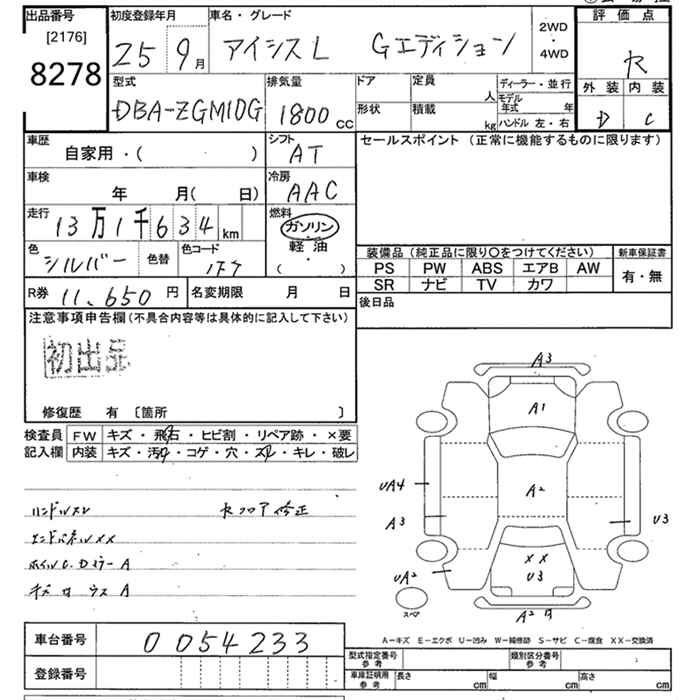 出品番号
[2176]
8278
初度登録年月
25 9月
車名・グレード
アイシスL Gエディション
2WD
・
4WD
評価点
R
外装 内装
D C
型式
DBA-ZGM10G
排気量
1800 CC
ドア
定員
人
形状
積載
kg
ディーラー・並行
モデル年式 年
ハンドル 左・右
車歴
自家用・( )
シフト
AT
セールスポイント (正常に機能するものに限ります)
車検
年 月( 日)
冷房
AAC
走行
13万1千634km
燃料
ガソリン
軽油
・
( )
色
シルバー
色替
色コード
装備品 (純正品に限り〇をつけてください)
PS PW ABS エアB AW
SR ナビ TV カワ
新車保証書
有・無
R券 11,650円
名変期限 月 日
後日品
注意事項申告欄(不具合内容等は具体的に記入して下さい)
初出品
修復歴 有 〔箇所 〕
検査員記入欄
FW キズ・飛石・ヒビ割・リペア跡・×要
内装 キズ・汚れ・コゲ・穴・スレ・キレ・破レ
ハンドルスレ
RフロアA修正
エンドパネルXX
A
A
A3
A1
A2
UA4
A3
U3
UA2
XX
U3
A2
スペア
A-キズ E-エクボ U-凹み W-補修跡 S-サビ C-腐食 XX-交換済
車台番号
0054233
登録番号
型式指定番号
参考
類別区分番号
参考
車庫証明用
参考
長さ cm
幅 cm
高さ cm